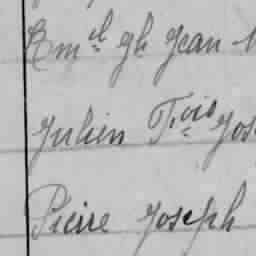 Rm el gh Jean
Julien Fois Jos
Pierre Joseph